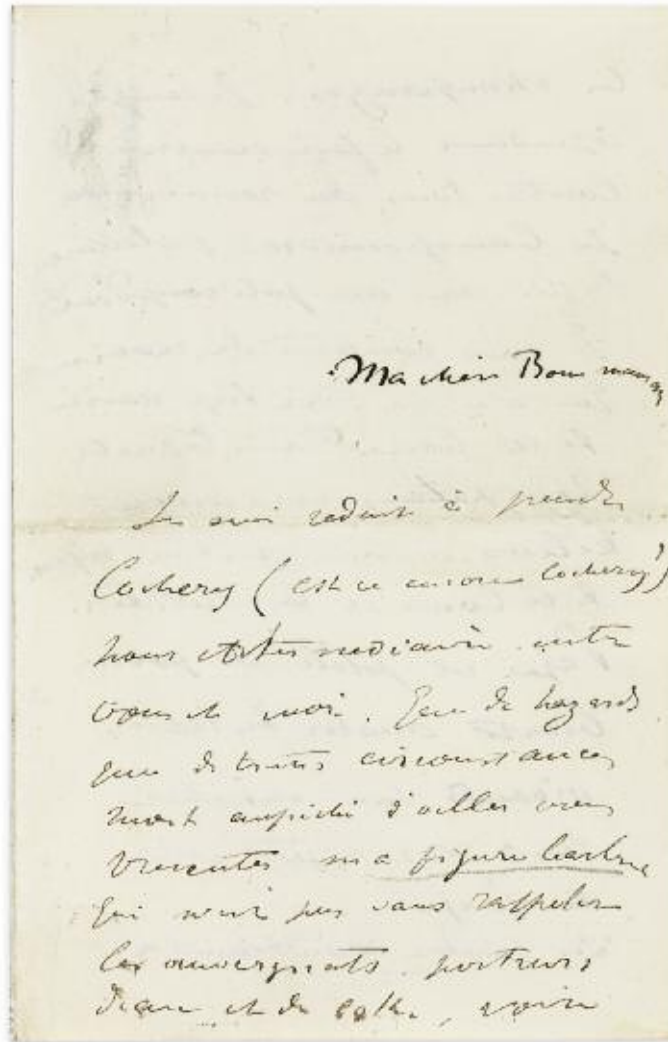 Ma chère Bonne maman
Je suis réduit à prendre
Cochery (est ce encore Cochery)
pour intermédiaire entre
vous et moi. Que de hazards
que de tristes circonstances
m'ont empéché d'aller vous
présenter ma figure barbue
qui n'est pas sans rappeler
les auvergnats porteurs
d'eau et de coke, voire